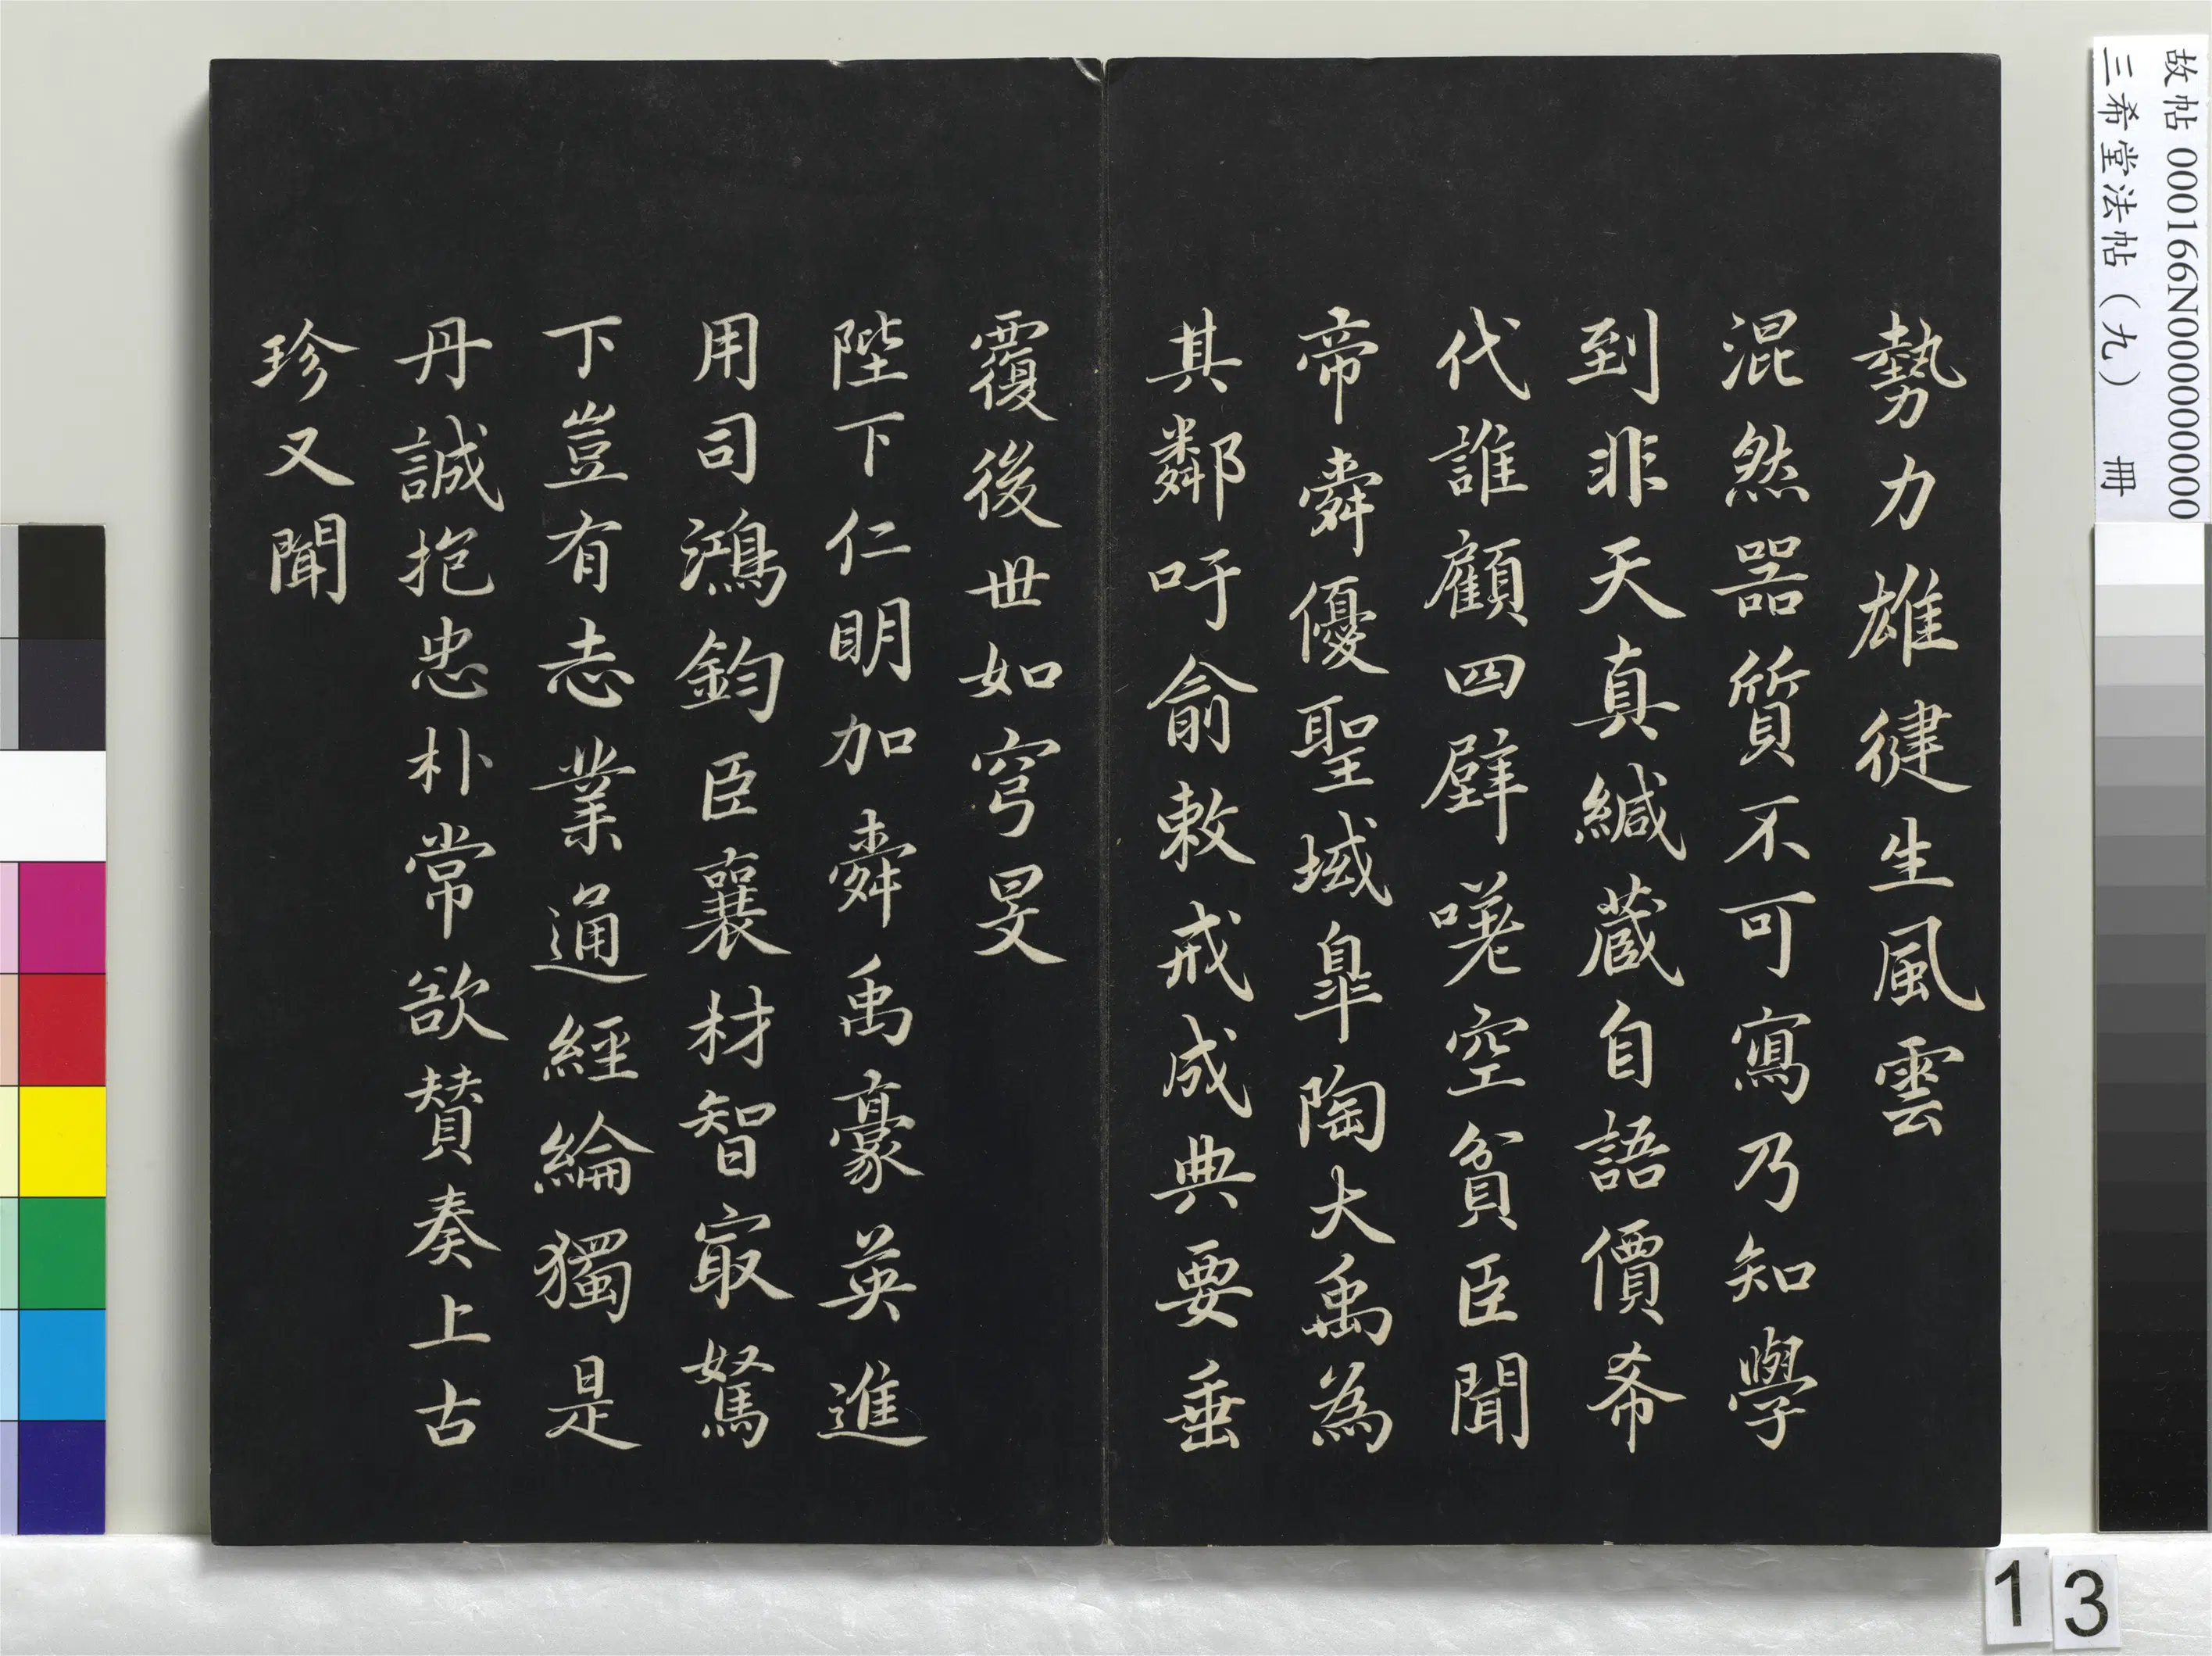 勢力雄健生風雲
混然器質不可寫乃知學
到非天真緘蔵自語價希
代誰顧四壁嘆空貧臣聞
帝舜優聖域皐陶大禹為
其鄰吁俞敕戒成典要垂
覆後世如穹旻
陛下仁明加舜禹豪英進
用司鴻鈞臣襄材智㝡駑
下豈有志業通經綸獨是
丹誠抱忠朴常欲賛奏上古
珍又聞
故帖 000166N000000000
三希堂法帖（九） 冊
13